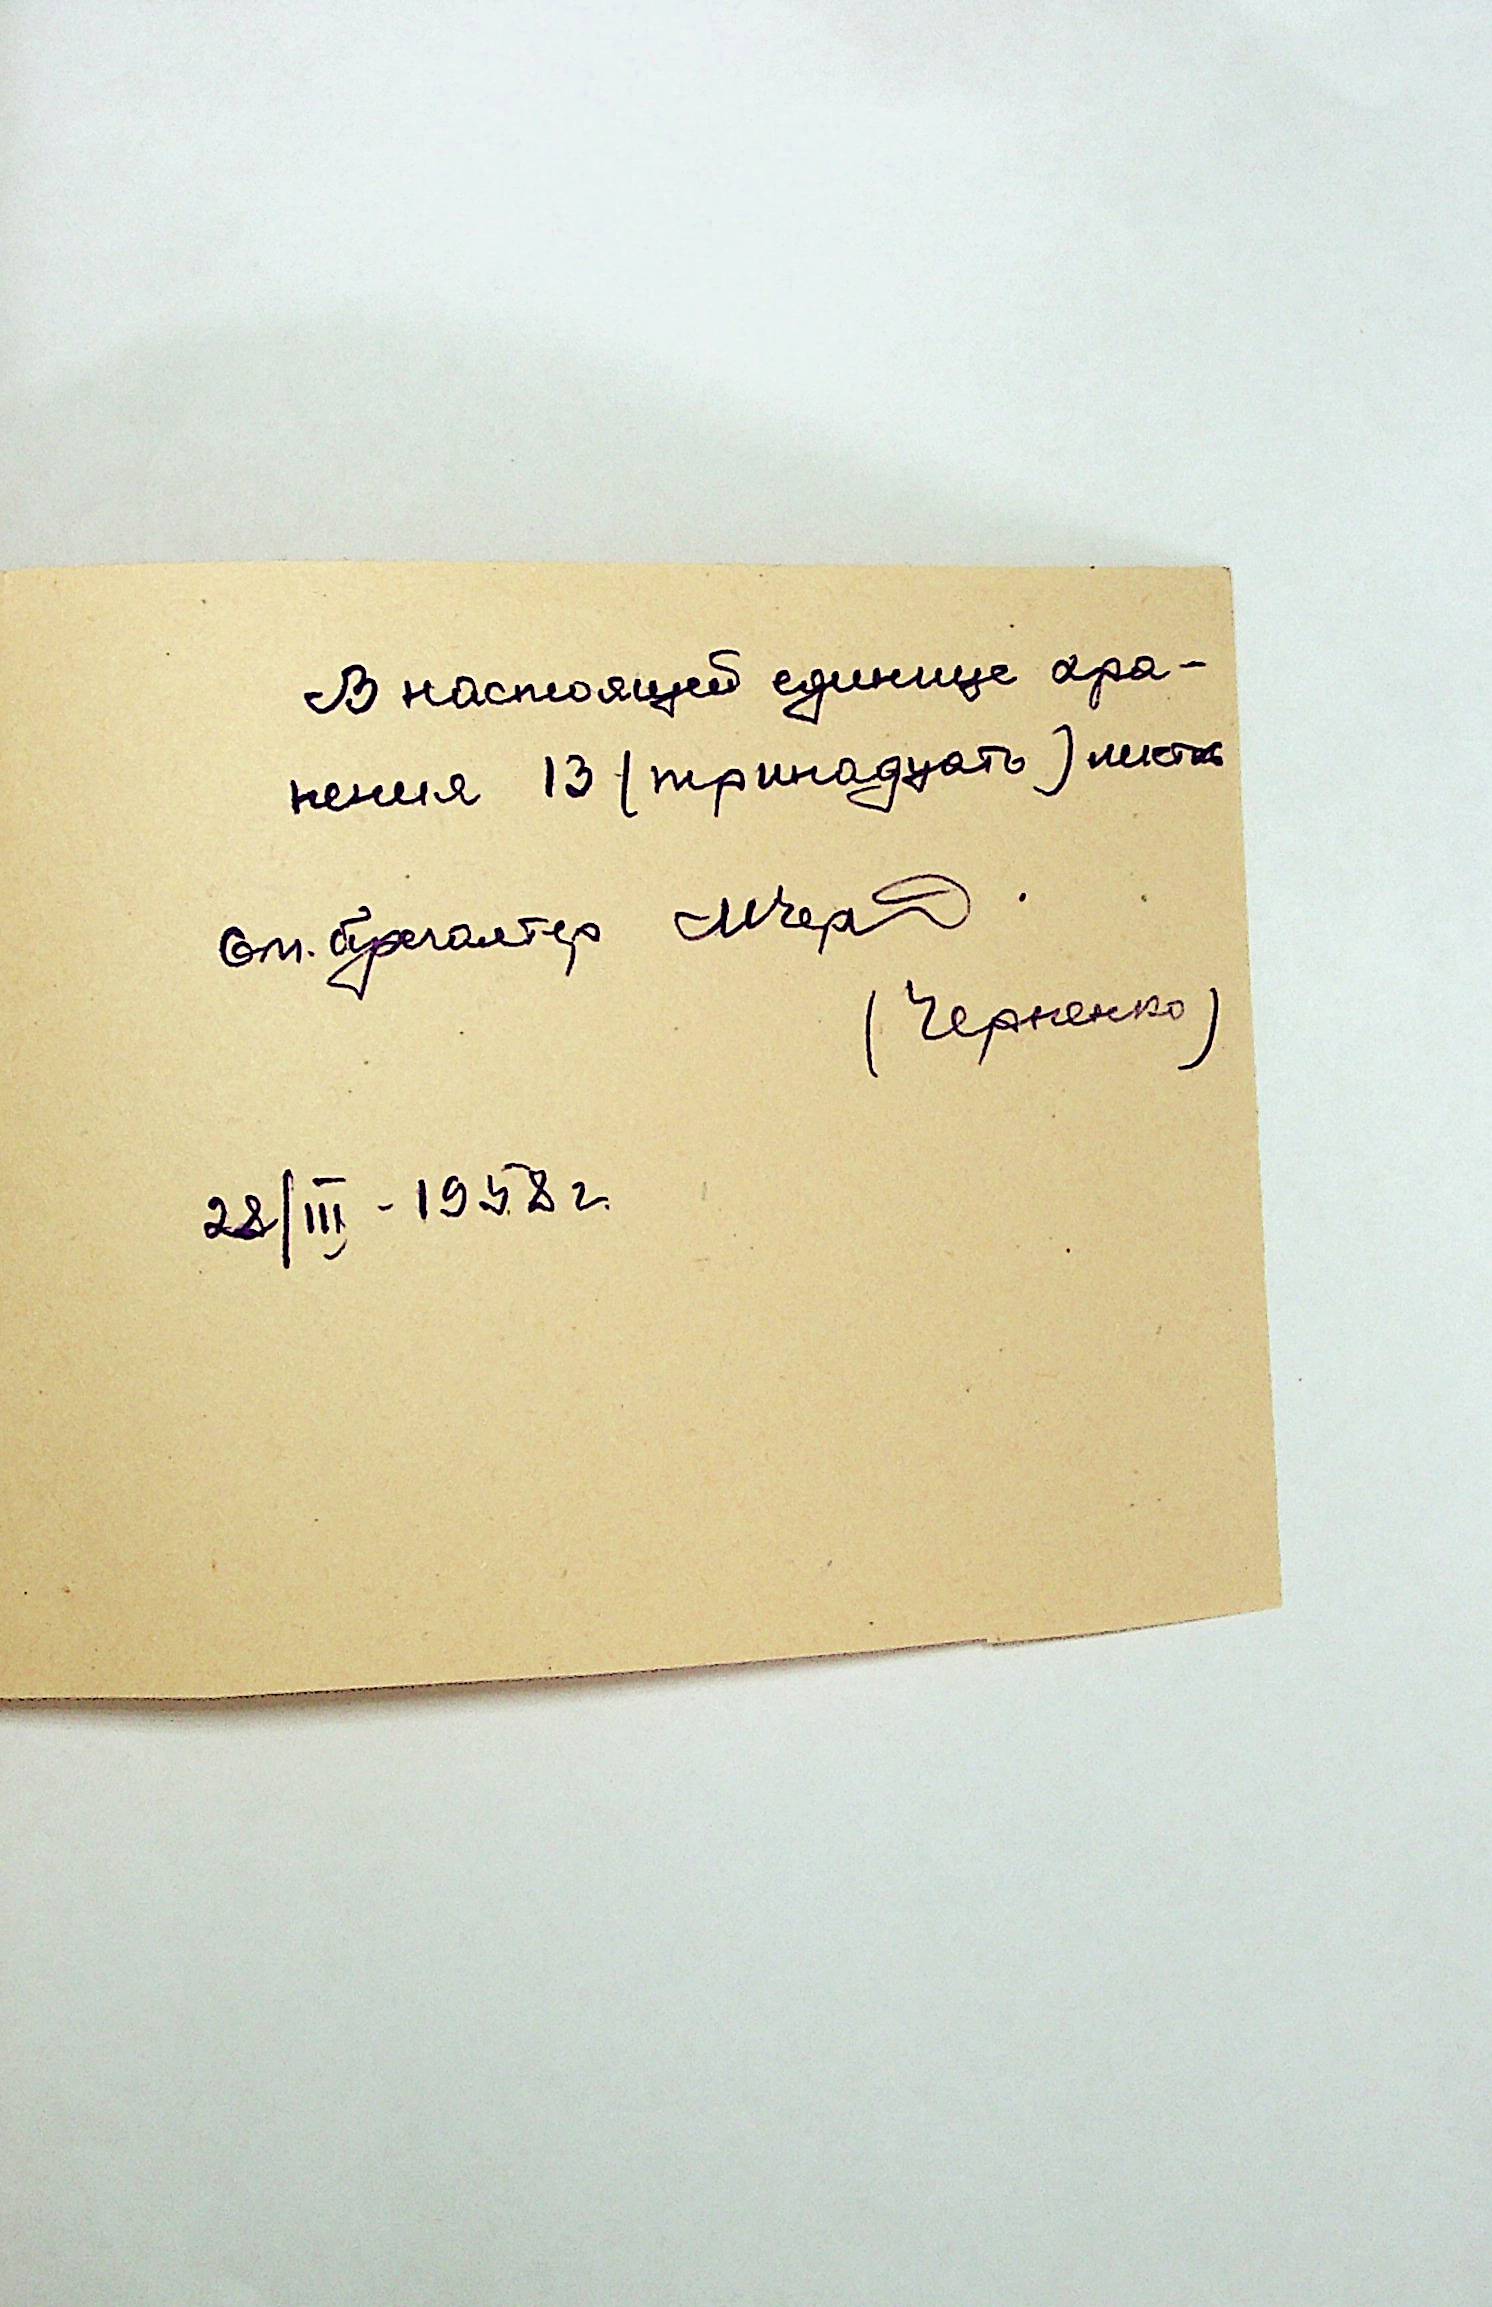 В настоящей единице хра-
нения 13 (тринадцать) листов
Ст. бухгалтер МЧер
(Черненко)
28/III - 1958 г.